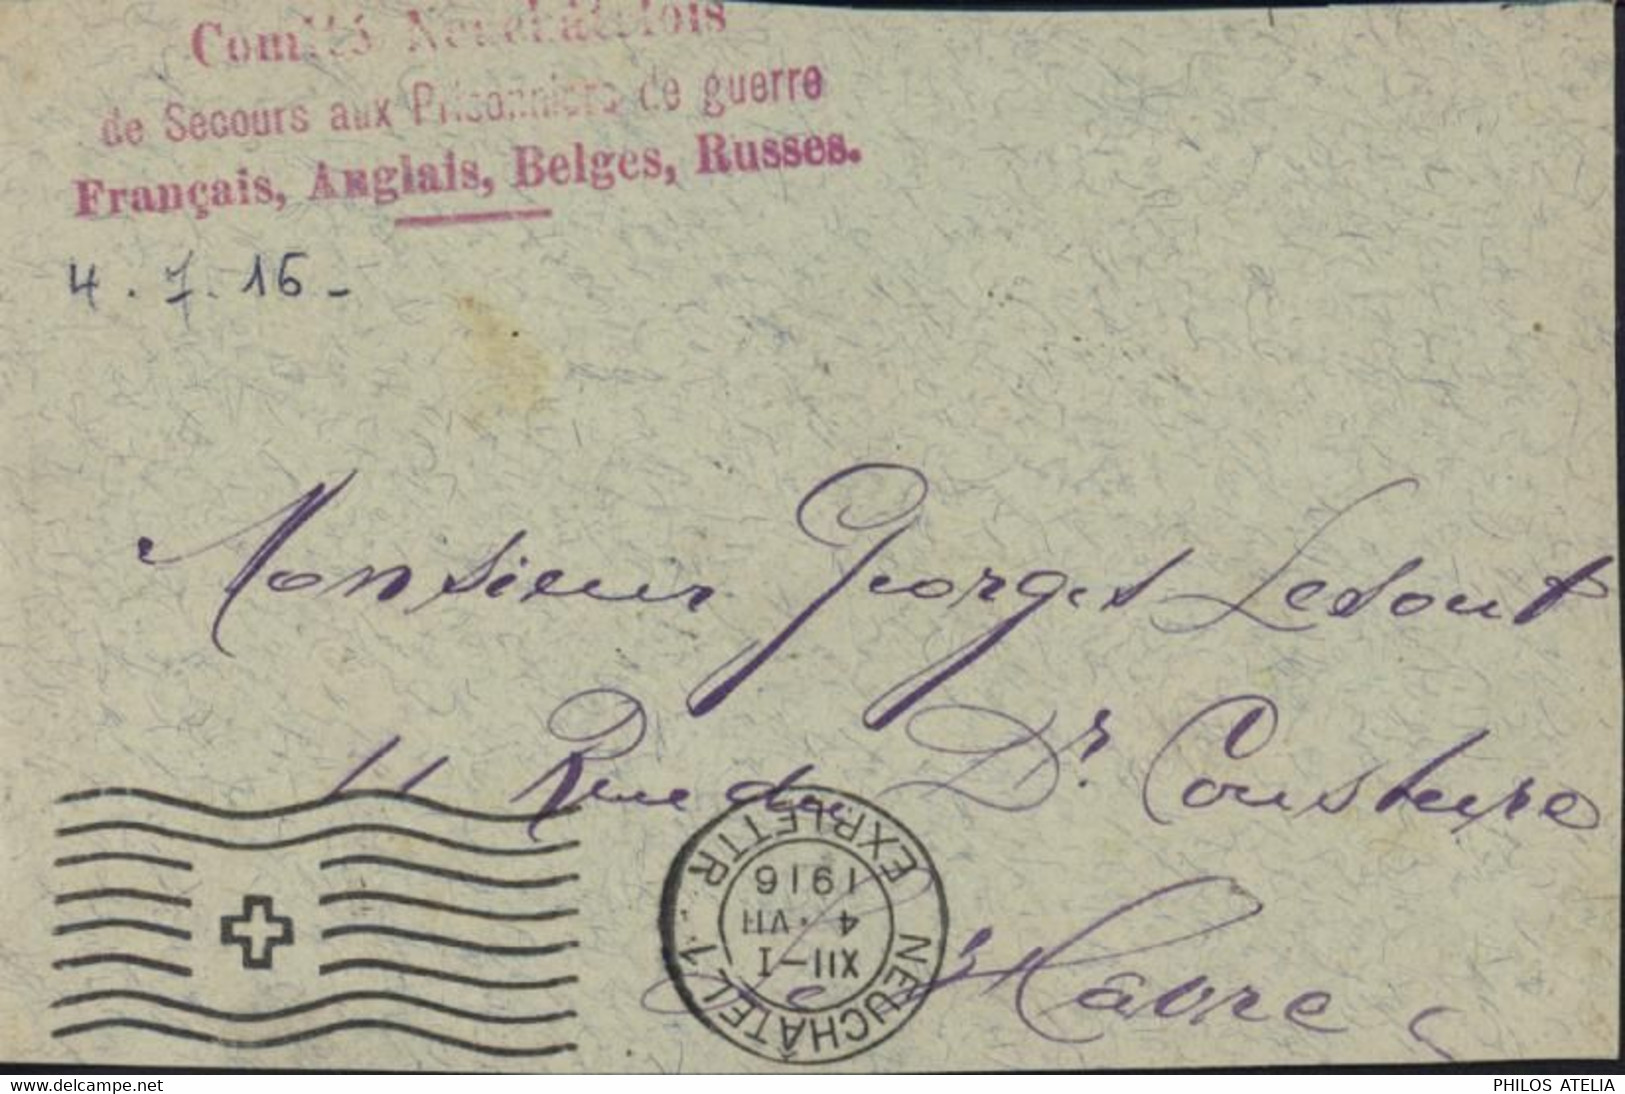 Comité Neuchâtelois
de Secours aux Prisonniers de guerre
Français, Anglais, Belges, Russes.
4.7.16-
Monsieur Georges Lesout
11 Rue du Dr. Cousture
Le Havre
NEUCHÂTEL 1
EXP. LETTR.
XII-I
4.VII
1916
www.delcampe.net
PHILOS ATELIA